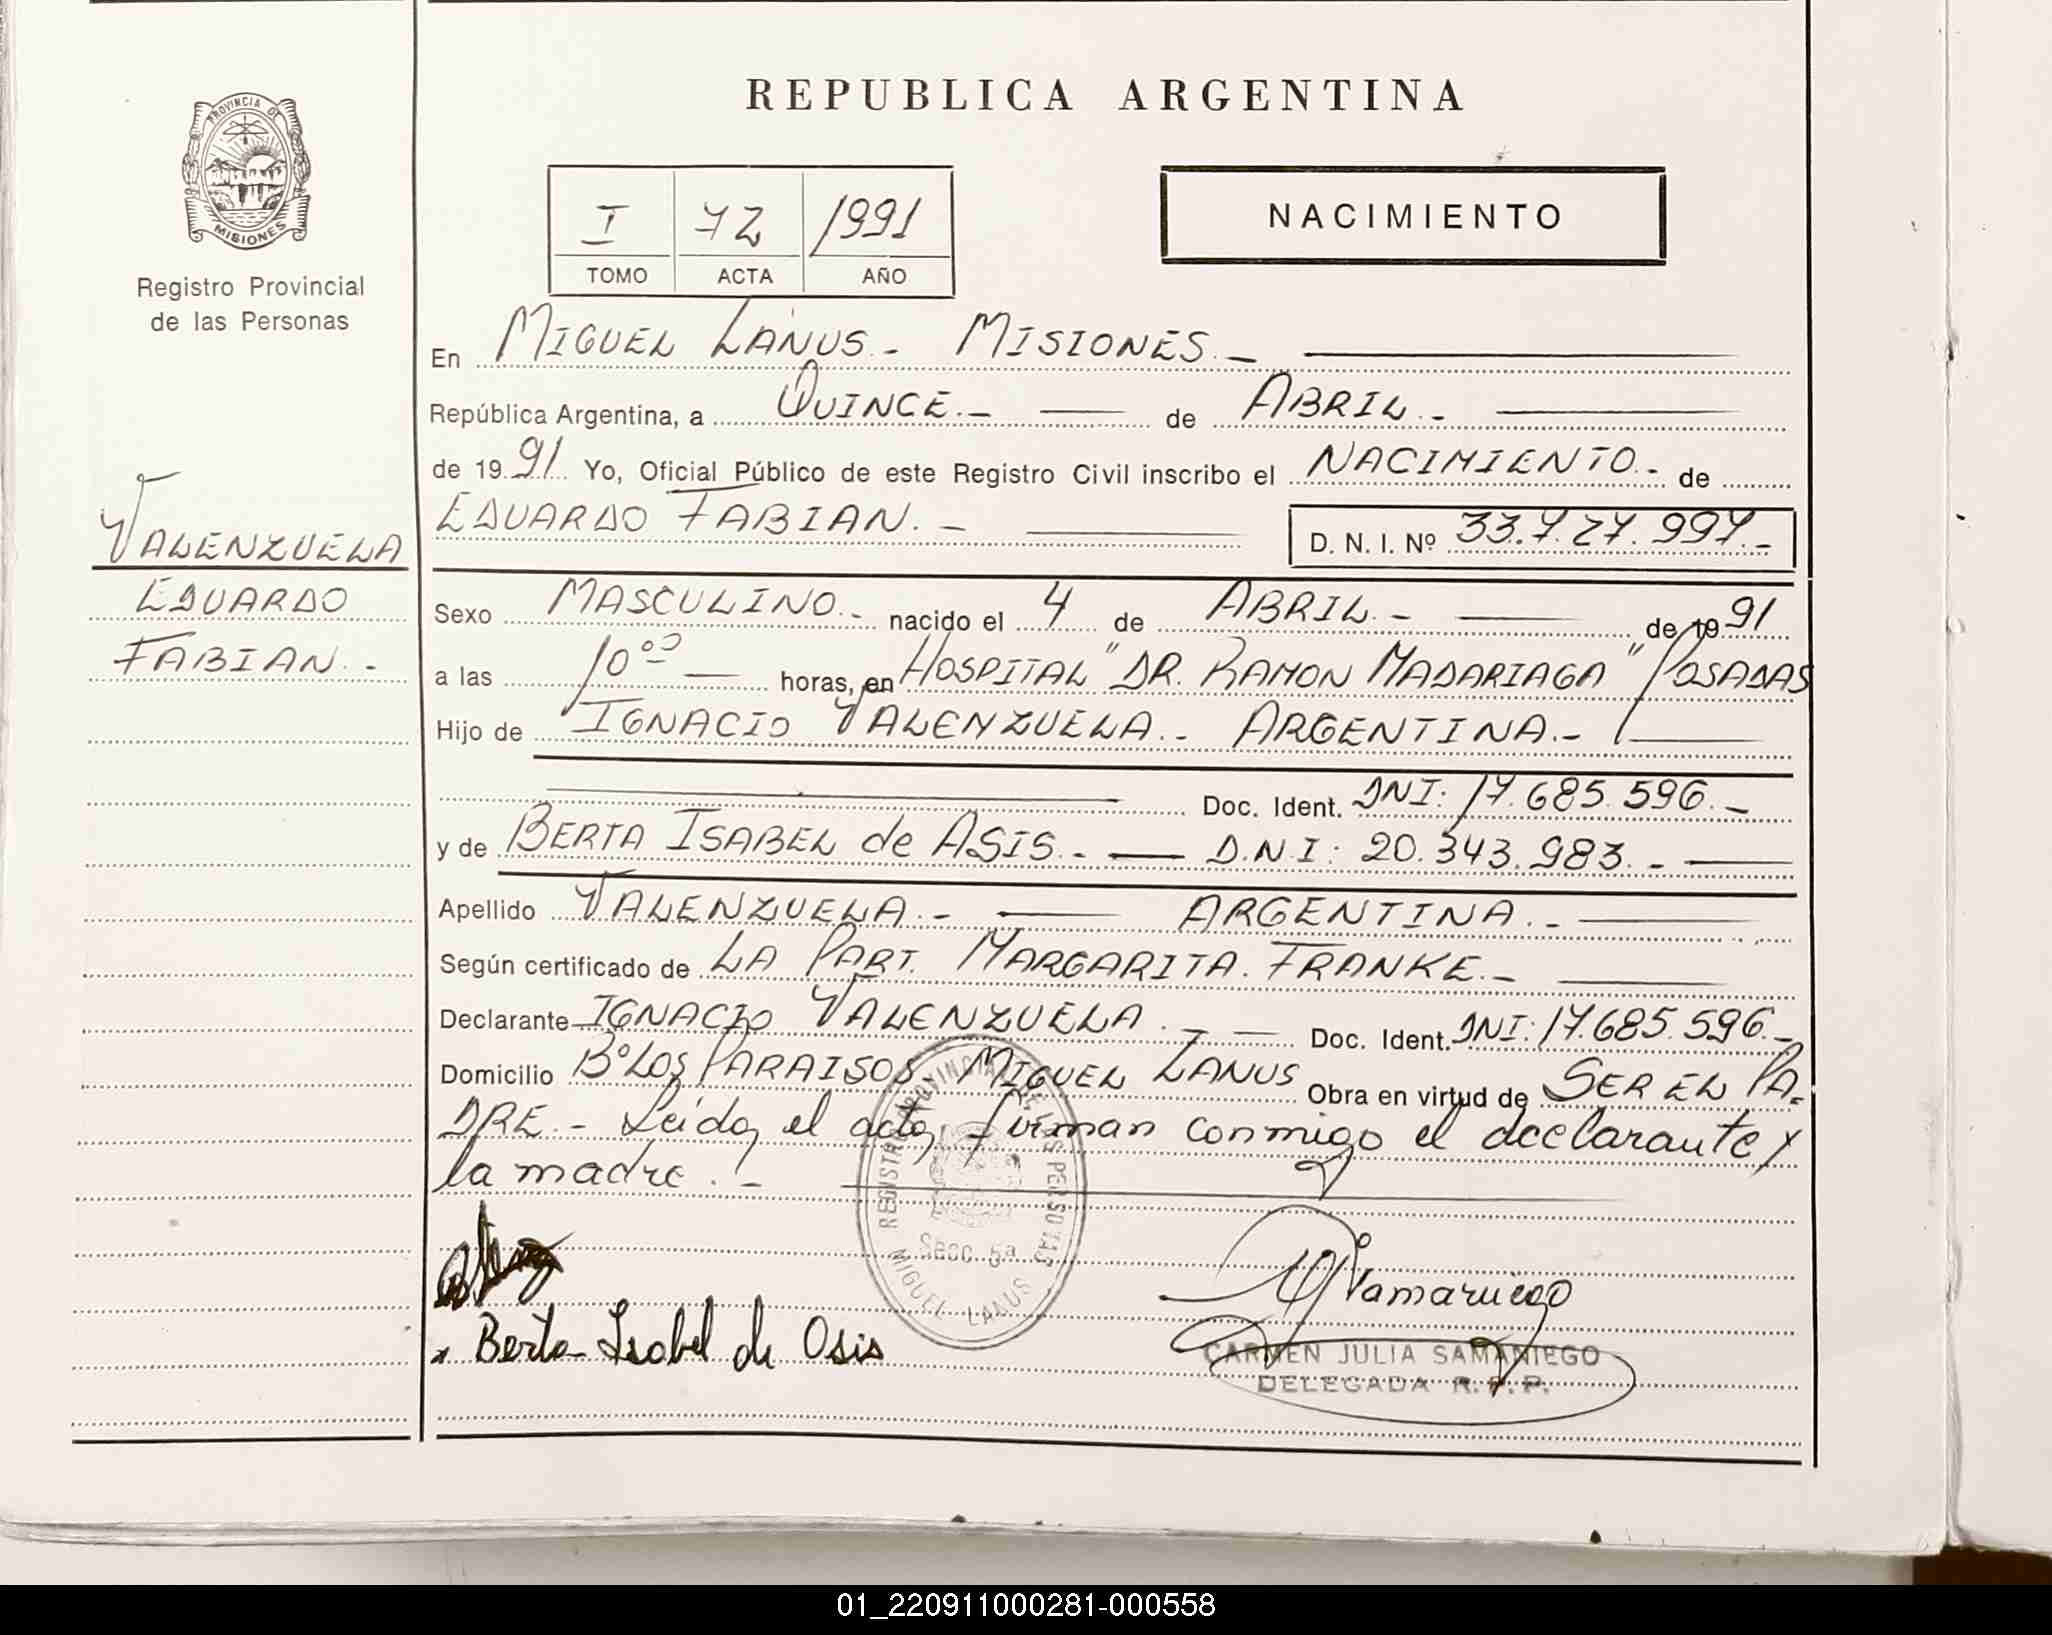 REPUBLICA ARGENTINA
PROVINCIA DE
MISIONES
Registro Provincial
de las Personas
I 72 1991
TOMO ACTA AÑO
NACIMIENTO
En MIGUEL LANUS.- MISIONES.-
República Argentina, a QUINCE.- de ABRIL.-
de 1991 Yo, Oficial Público de este Registro Civil inscribo el NACIMIENTO.- de
EDUARDO FABIAN.- D. N. I. Nº 33.727.997.-
VALENZUELA
EDUARDO
FABIAN.-
Sexo MASCULINO.- nacido el 4 de ABRIL.- de 1991
a las 10⁰⁰ horas, en HOSPITAL "DR. RAMON MADARIAGA" POSADAS
Hijo de IGNACIO VALENZUELA.- ARGENTINA.-
Doc. Ident. DNI: 17.685.596.-
y de BERTA ISABEL de ASIS.- D.N.I: 20.343.983.-
Apellido VALENZUELA.- ARGENTINA.-
Según certificado de LA PART. MARGARITA. FRANKE.-
Declarante IGNACIO VALENZUELA.- Doc. Ident. DNI: 17.685.596.-
Domicilio Bº LOS PARAISOS MIGUEL LANUS Obra en virtud de SER EL PA-
DRE.- Leida el acta, firman conmigo el declarante y
la madre.-
REGISTRO PROVINCIAL DE LAS PERSONAS
SECC. 5ª
MIGUEL LANUS
Berta Isabel de Asis
CARMEN JULIA SAMANIEGO
DELEGADA R.P.P.
01_220911000281-000558